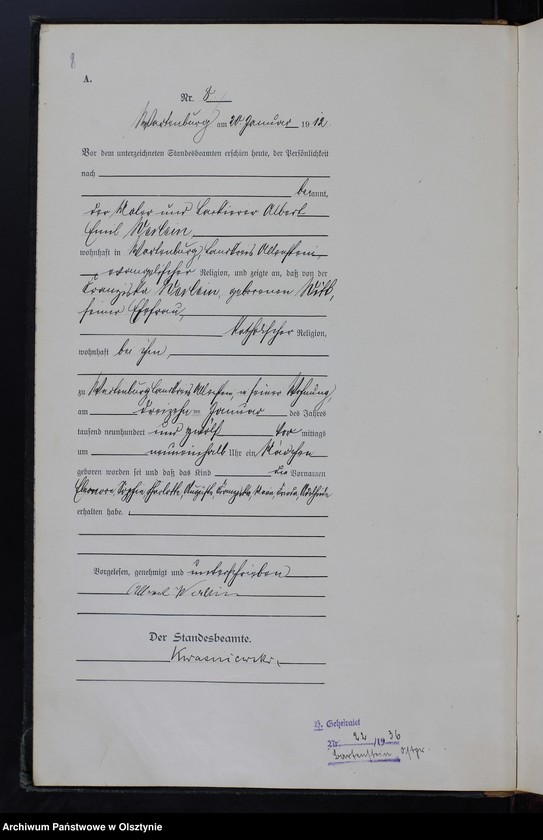 8
A.
Nr. 8
Wartenburg am 20. Januar 1912.
Vor dem unterzeichneten Standesbeamten erschien heute, der Persönlichkeit
nach
bekannt,
der Maler und Lackierer Albert
Emil
wohnhaft in Wartenburg, Landkreis Allenstein
evangelischer Religion, und zeigte an, daß von der
Franziska geborenen
seiner Ehefrau,
katholischer Religion,
wohnhaft bei ihm,
zu Wartenburg Landkreis Allenstein, in seiner Wohnung,
am dreizehnten Januar des Jahres
tausend neunhundert und zwölf vor mittags
um neuneinhalb Uhr ein Mädchen
geboren worden sei und daß das Kind die Vornamen
Eleonore, Sophie, Charlotte, Auguste, Franziska,
erhalten habe.
Vorgelesen, genehmigt und unterschrieben
Albert
Der Standesbeamte.
Kwasniewski.
H. Geheiratet
Nr. 22 /19 36
Bartenstein Ostpr.
Archiwum Państwowe w Olsztynie